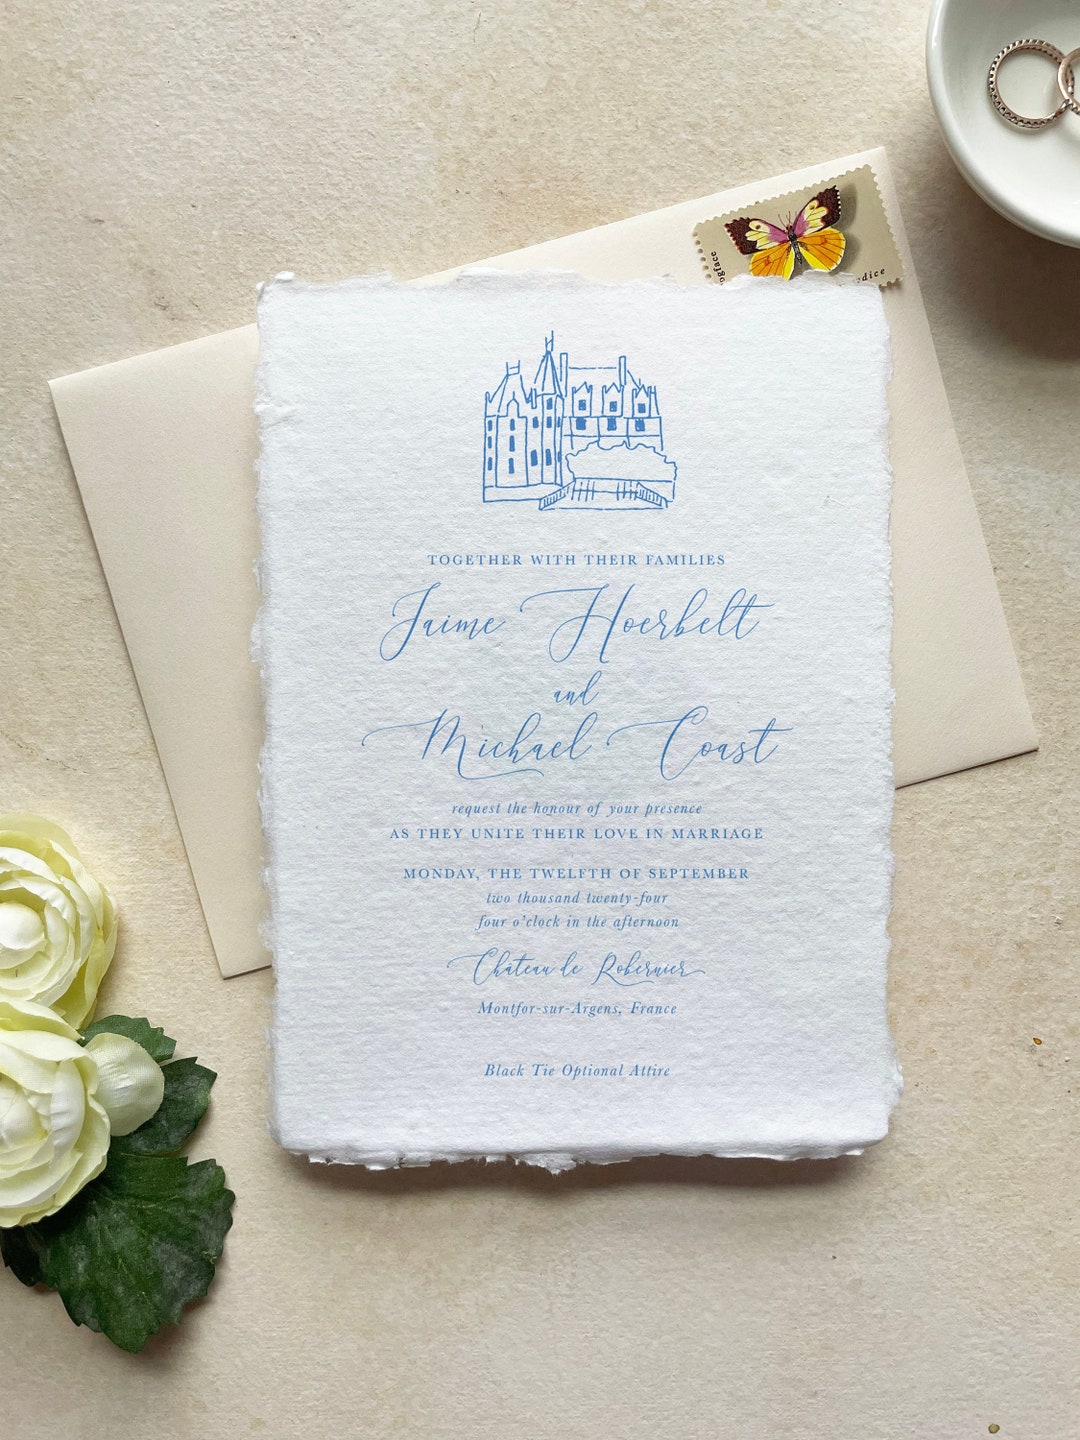 dogface
dice
TOGETHER WITH THEIR FAMILIES
Jaime Hoerbelt
and
Michael Coast
request the honour of your presence
AS THEY UNITE THEIR LOVE IN MARRIAGE
MONDAY, THE TWELFTH OF SEPTEMBER
two thousand twenty-four
four o'clock in the afternoon
Château de Robernier
Montfor-sur-Argens, France
Black Tie Optional Attire